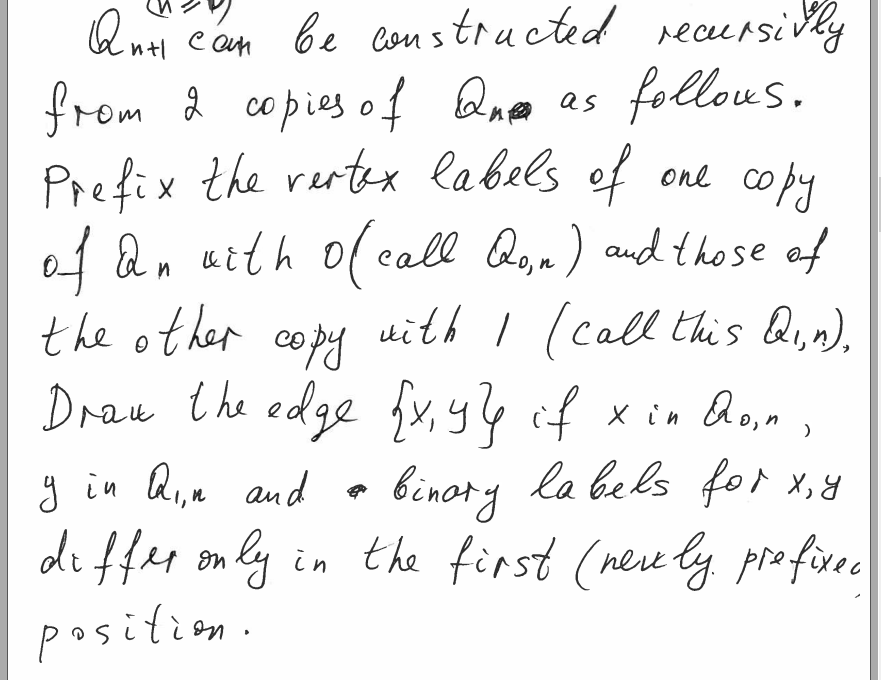 (n ≥
Q_{n+1} can be constructed recursively
from 2 copies of Q_n as follows.
Prefix the vertex labels of one copy
of Q_n with 0 (call Q_{0,n}) and those of
the other copy with 1 (call this Q_{1,n}).
Draw the edge {x, y} if x in Q_{0,n},
y in Q_{1,n} and binary labels for x, y
differ only in the first (newly prefixed
position.